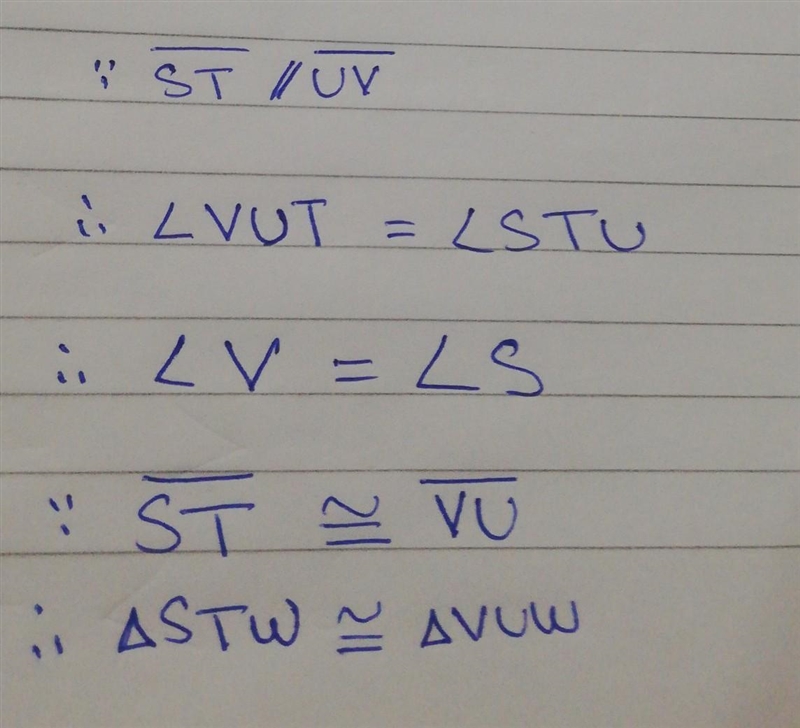 ∵ S̅T̅ // U̅V̅
∴ ∠VUT = ∠STU
∴ ∠V = ∠S
∵ S̅T̅ ≅ V̅U̅
∴ ΔSTW ≅ ΔVUW